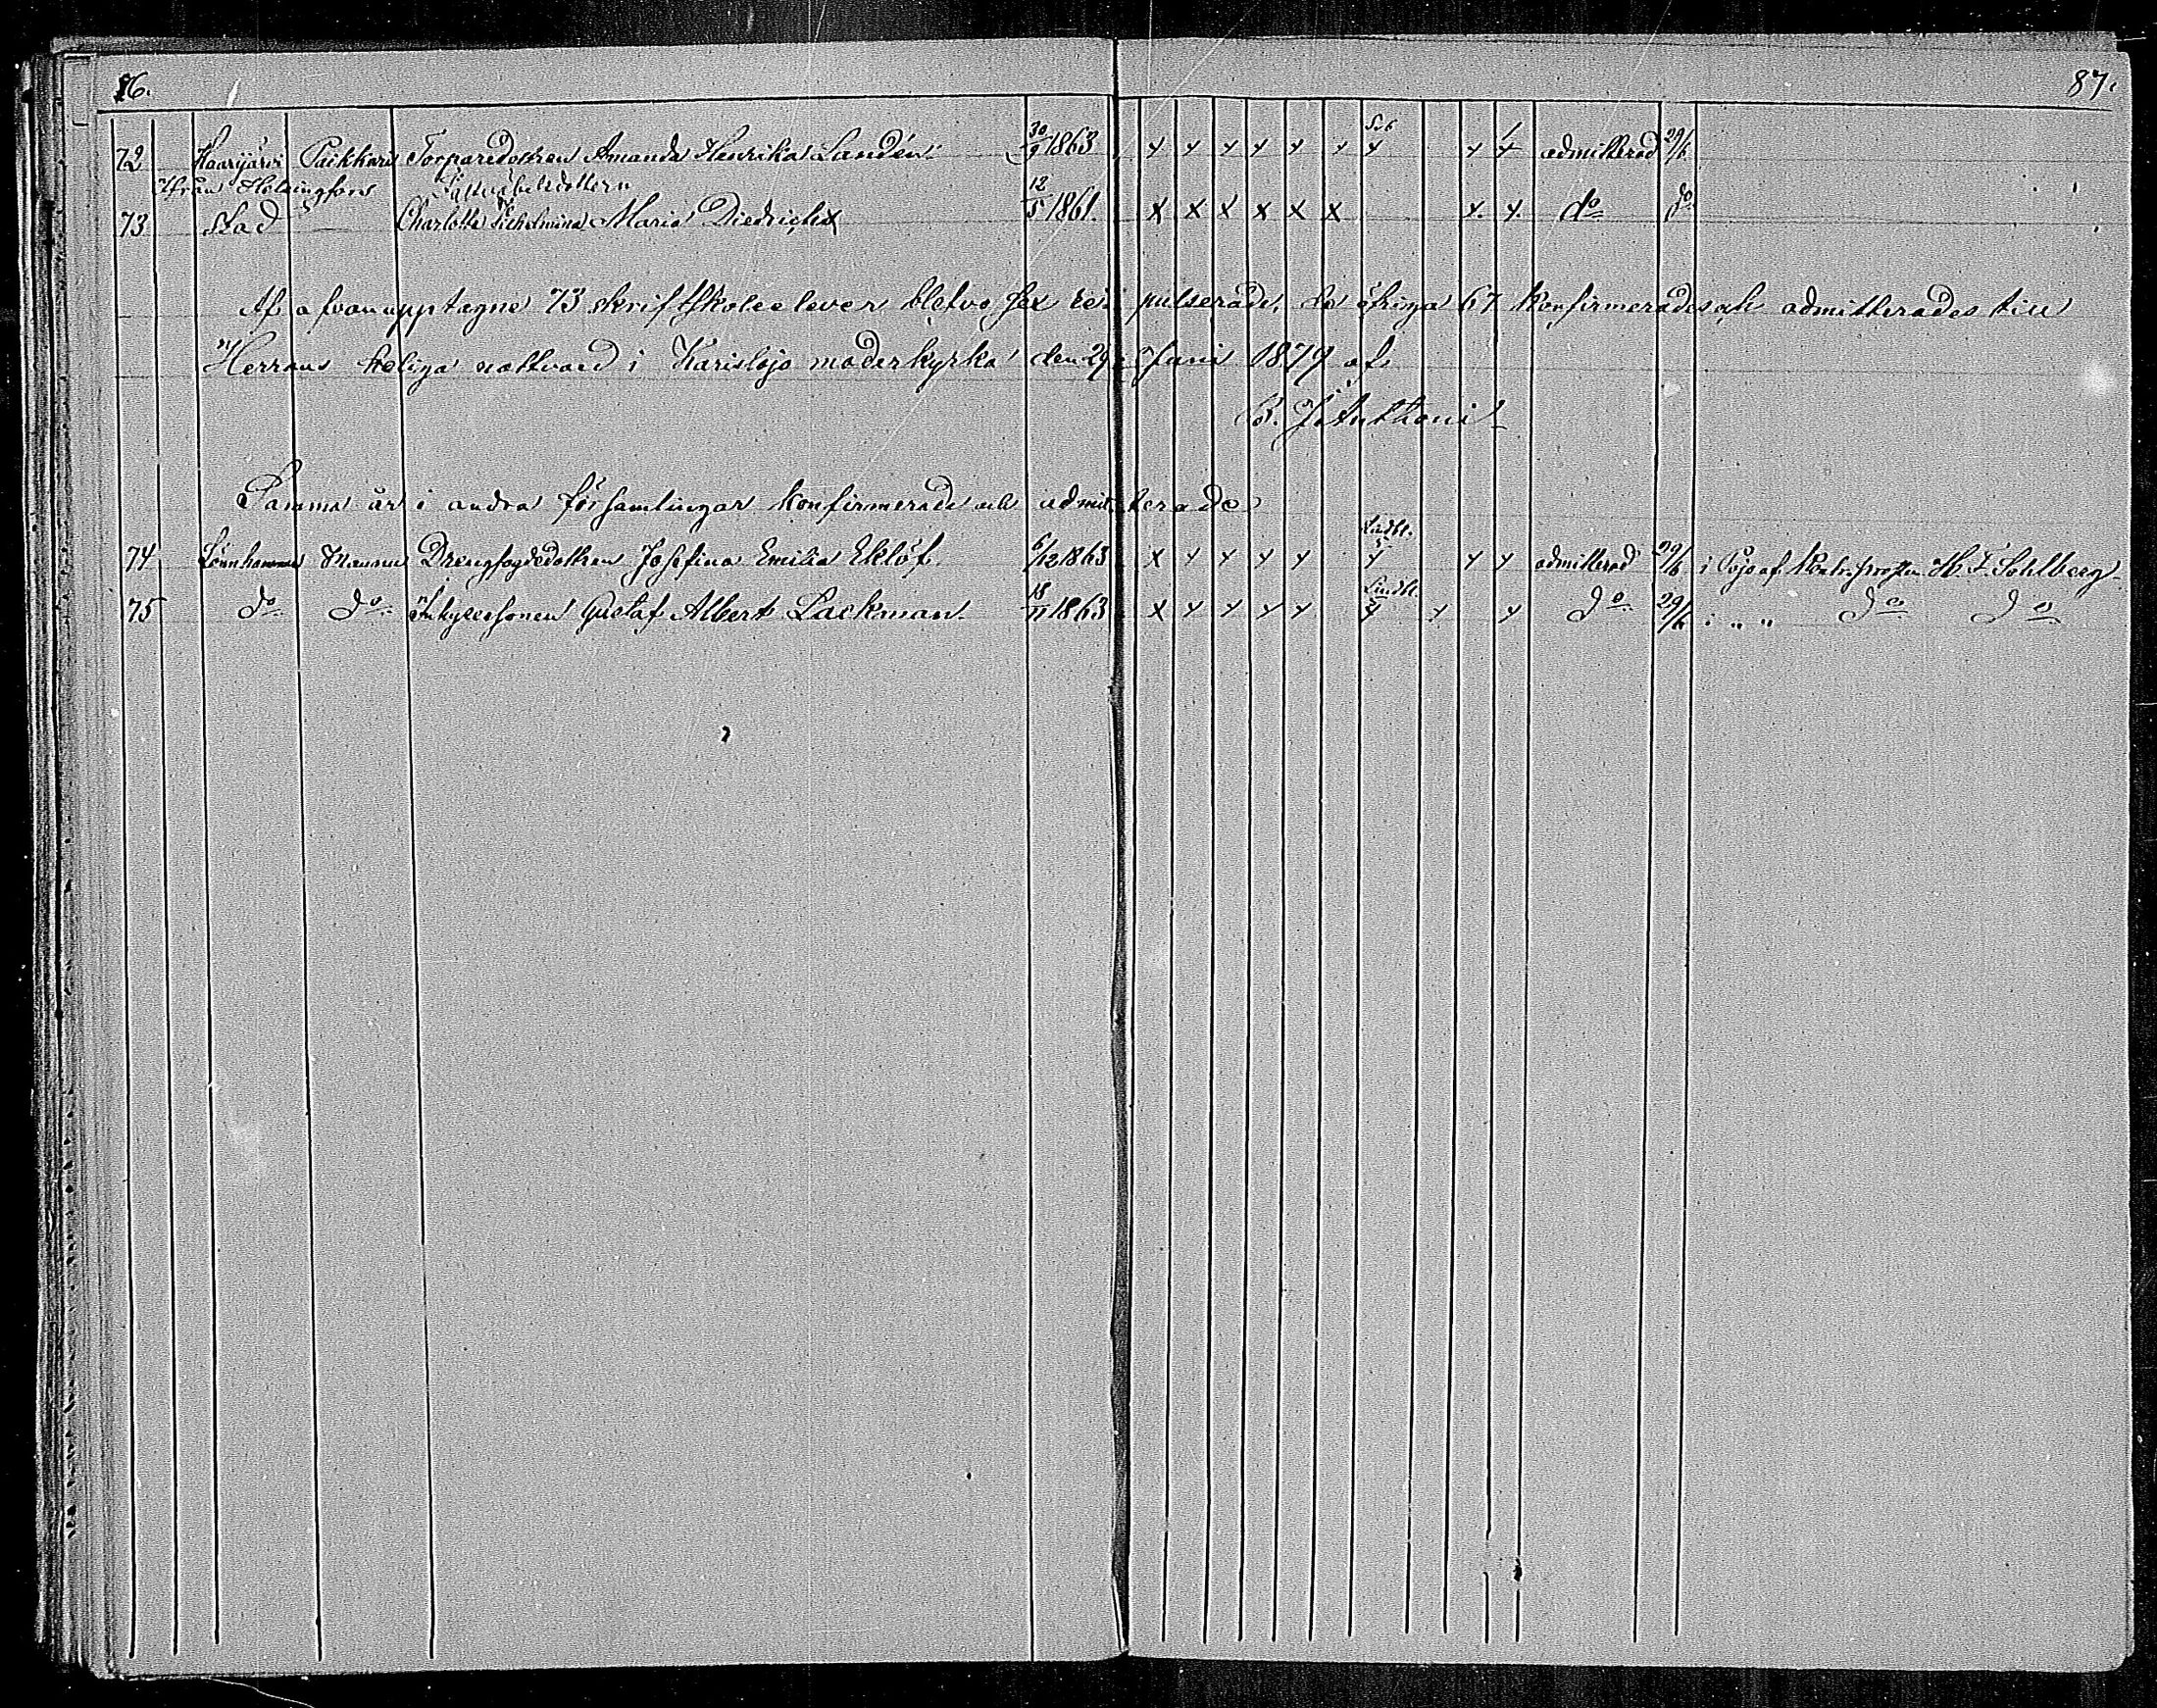 86. 87.
72 Haarijärvi Paikkari Torparedottren Amanda Henrika Landén. 30/9 1863 x x x x x x x x x admitterad 29/6
Ifrån Helsingfors Fältväbelsdottern
73 stad Charlotta Vilhelmina Maria Diedrichs 12/5 1861. x x x x x x x. x. do do
Af ofvanupptagne 73 skriftskoleelever blefvo sex re- pulserade, de öfriga 67 konfirmerades och admitterades till
Herrans heliga nattvard i Karislojo moderkyrka den 29 Juni 1879 af
B. J. Anthoni
Samma år i andra församlingar konfirmerade och admitterade
74 Lönnhammar Drengfogdedottren Josefina Emilia Eklöf. 6/12 1863 x x x x x Lindbl. x x x admitterad 29/6 i Pojo af Kontr.prosten H. F. Sohlberg.
75 do do Inhysessonen Gustaf Albert Lackman. 18/11 1863 x x x x x Lindbl. x x x do 29/6 i " " do do